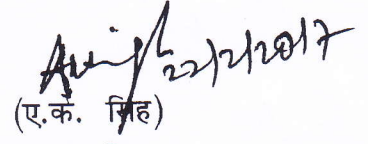 22/2/2017
(ए.के. सिंह)